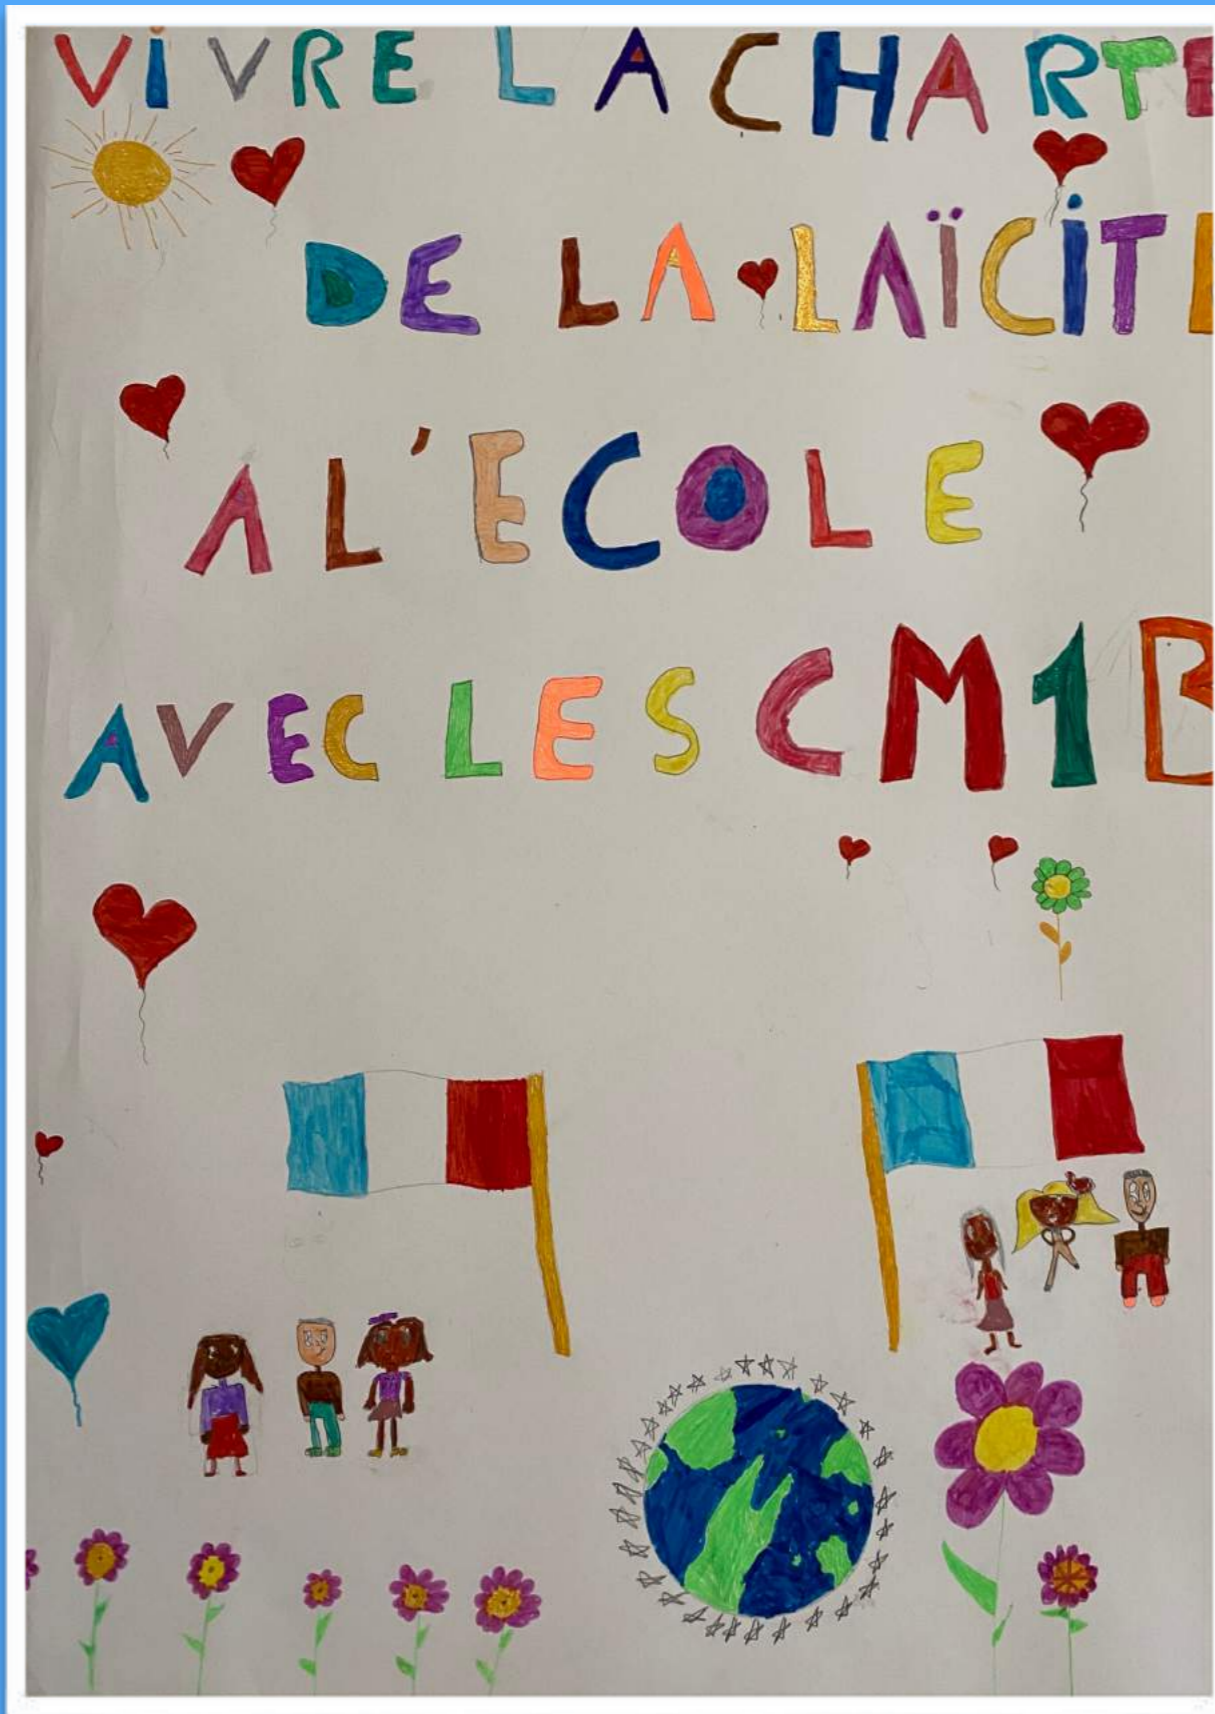 ViVRE LA CHARTE
DE LA LAÏCiT
A L'ECOLE
AVEC LES CM1B